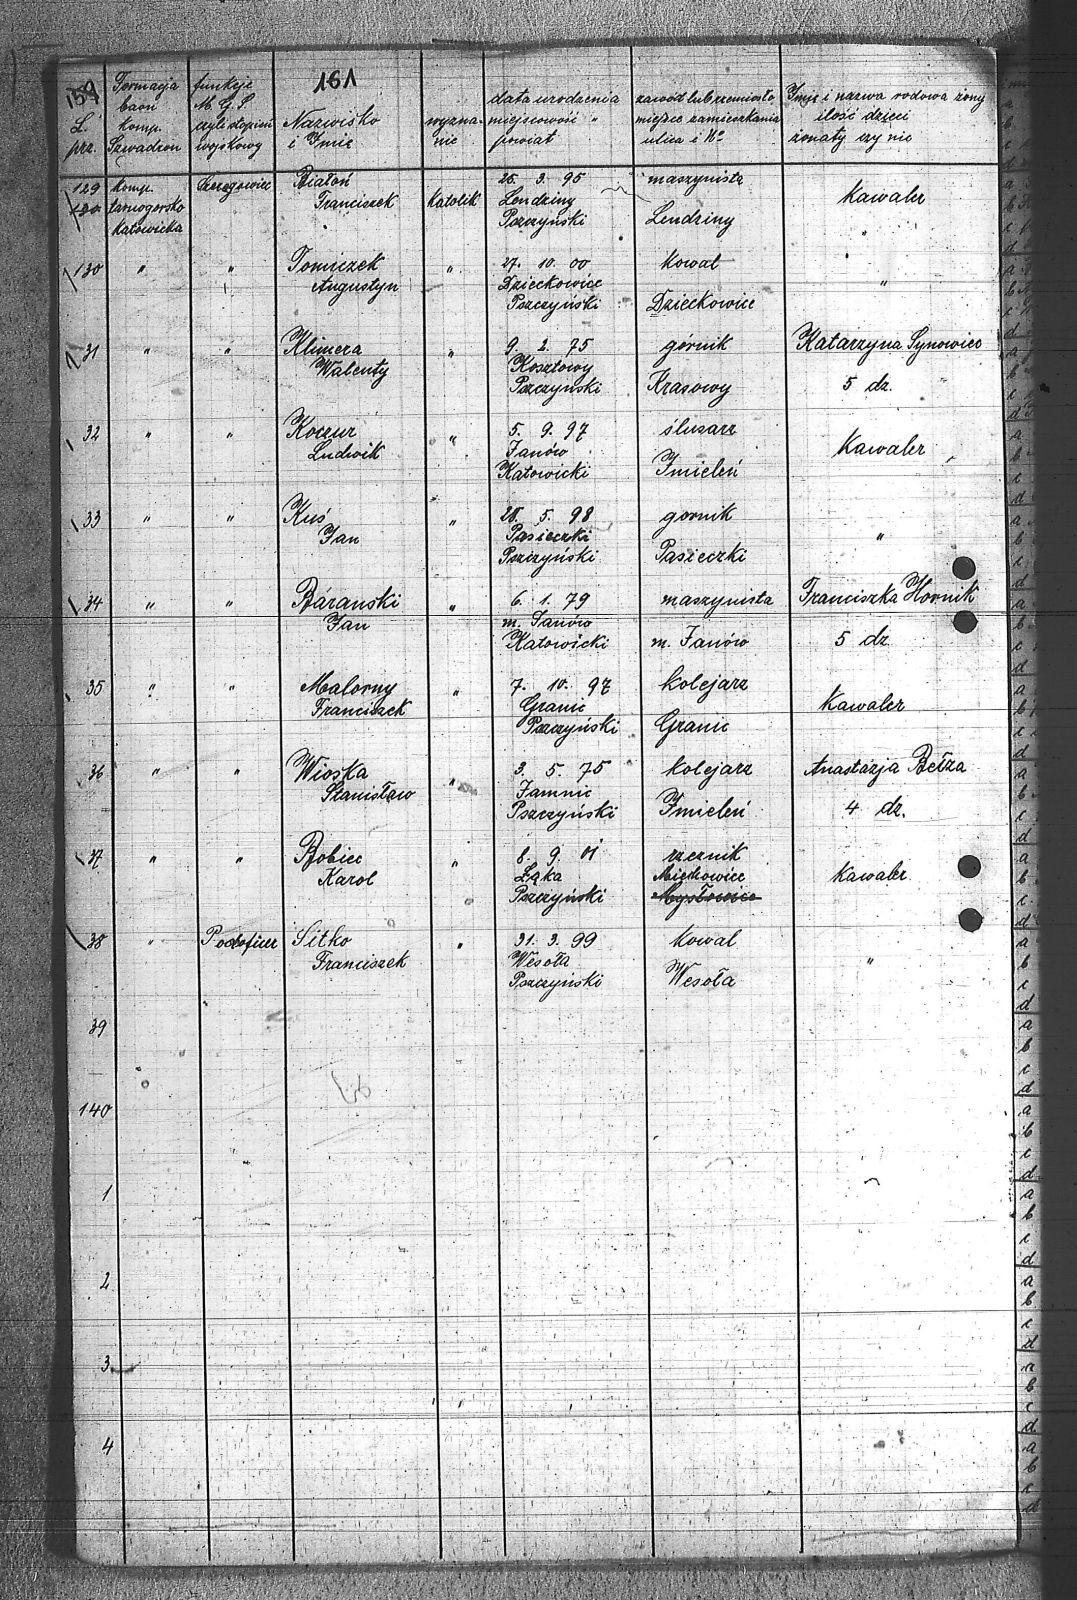 159 161
Formacja
baon
komp.
Szwadron
funkcje
M. G. S.
czyli stopień
wojskowy
L.
prz.
Nazwisko
i Imię
wyzna-
nie
data urodzenia
miejscowość "
powiat
zawód lub rzemiosło
miejsce zamieszkania
ulica i No
Imię i nazwa rodowa żony
ilość dzieci
żonaty czy nie
129 komp. Szeregowiec Białoń 25. 3. 95 maszynista
130 tarnogorsko Franciszek Katolik Lendziny Kawaler
Katowicka Pszczyński Lendziny
130 " " Tomiczek " 27. 10. 00 Kowal "
Augustyn Dzieckowice
Pszczyński Dzieckowice
31 " " Klimera " 9. 2. 75 górnik Katarzyna Synowiec
Walenty Kosztowy
Pszczyński Krasowy 5 dz.
32 " " Koczur " 5. 9. 97 ślusarz Kawaler
Ludwik Janów
Katowicki Imieleń
33 " " Kuś " 28. 5. 98 gornik "
Jan Pasieczki
Pszczyński Pasieczki
34 " " Baranski " 6. 1. 79 maszynista Franciszka Hornik
Jan m. Janów
Katowicki m. Janów 5 dz
35 " " Malorny " 7. 10. 97 kolejarz Kawaler
Franciszek Granic
Pszczyński Granic
36 " " Wioska " 3. 5. 75 kolejarz Anastazja Bełza
Stanisław Jamnic
Pszczyński Imieleń 4 dz.
37 " " Bobiec " 8. 9. 01 rzeznik Kawaler
Karol Łąka Miechowice
Pszczyński Mysłowice
38 " Podoficer Sitko " 31. 3. 99 Kowal "
Franciszek Wesoła
Pszczyński Wesoła
39
140
1
2
3
4